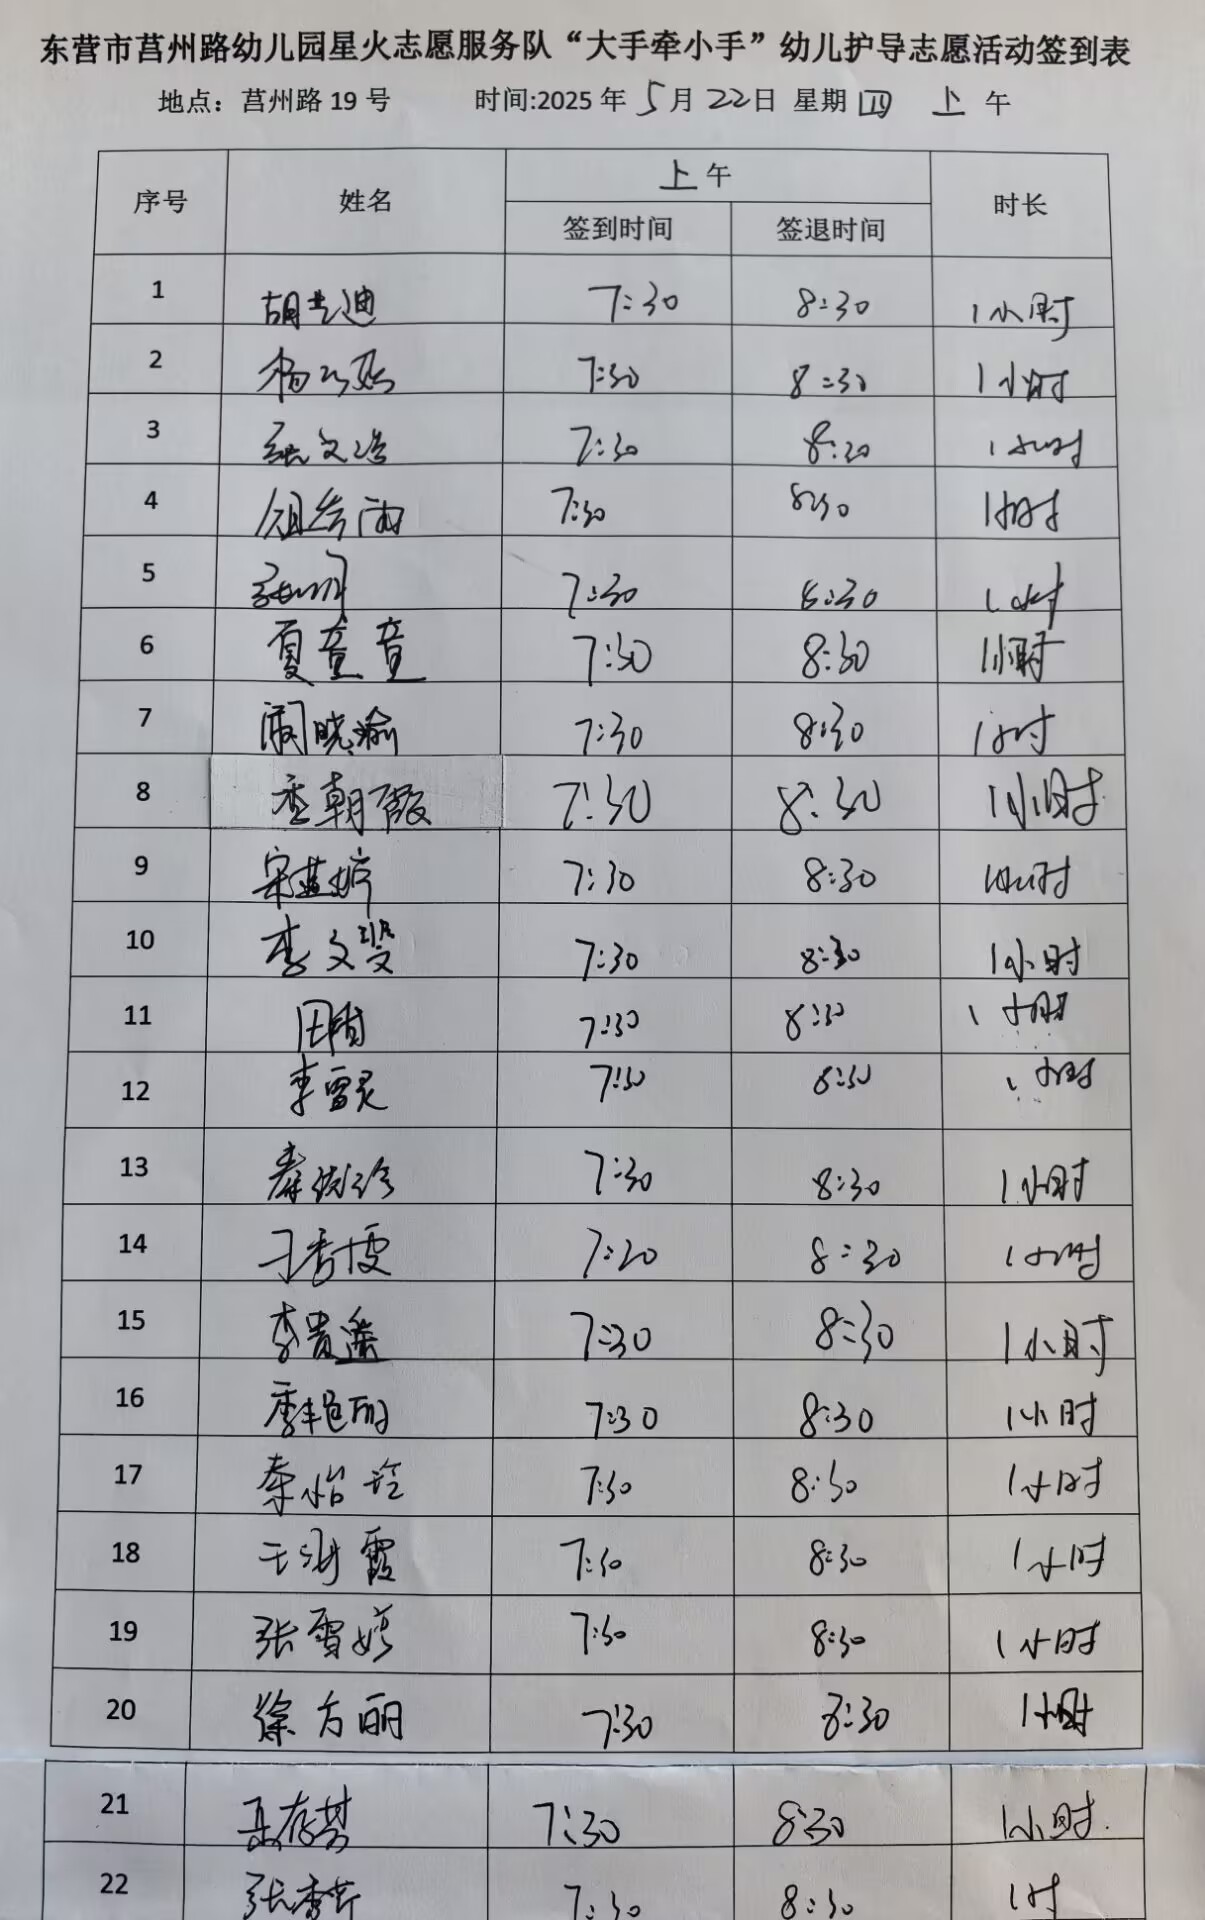 东营市莒州路幼儿园星火志愿服务队“大手牵小手”幼儿护导志愿活动签到表
地点：莒州路19号 时间:2025年5月22日 星期四 上午
序号 姓名 上午 时长
签到时间 签退时间
1 胡兰迪 7:30 8:30 1小时
2 杨 7:30 8:30 1小时
3 张文浩 7:30 8:30 1小时
4 雨 7:30 8:30 1小时
5 张明 7:30 8:30 1小时
6 夏童童 7:30 8:30 1小时
7 周晓渝 7:30 8:30 1小时
8 李朝霞 7:30 8:30 1小时
9 宋燕婷 7:30 8:30 1小时
10 李文翠 7:30 8:30 1小时
11 田甜 7:30 8:30 1小时
12 李雪灵 7:30 8:30 1小时
13 秦 7:30 8:30 1小时
14 刁秀 7:20 8:30 1小时
15 李贵遥 7:30 8:30 1小时
16 季艳丽 7:30 8:30 1小时
17 秦怡玲 7:30 8:30 1小时
18 王海霞 7:30 8:30 1小时
19 张雪婷 7:30 8:30 1小时
20 徐方丽 7:30 8:30 1小时
21 王存芬 7:30 8:30 1小时.
22 张秀芹 7:30 8:30 1时